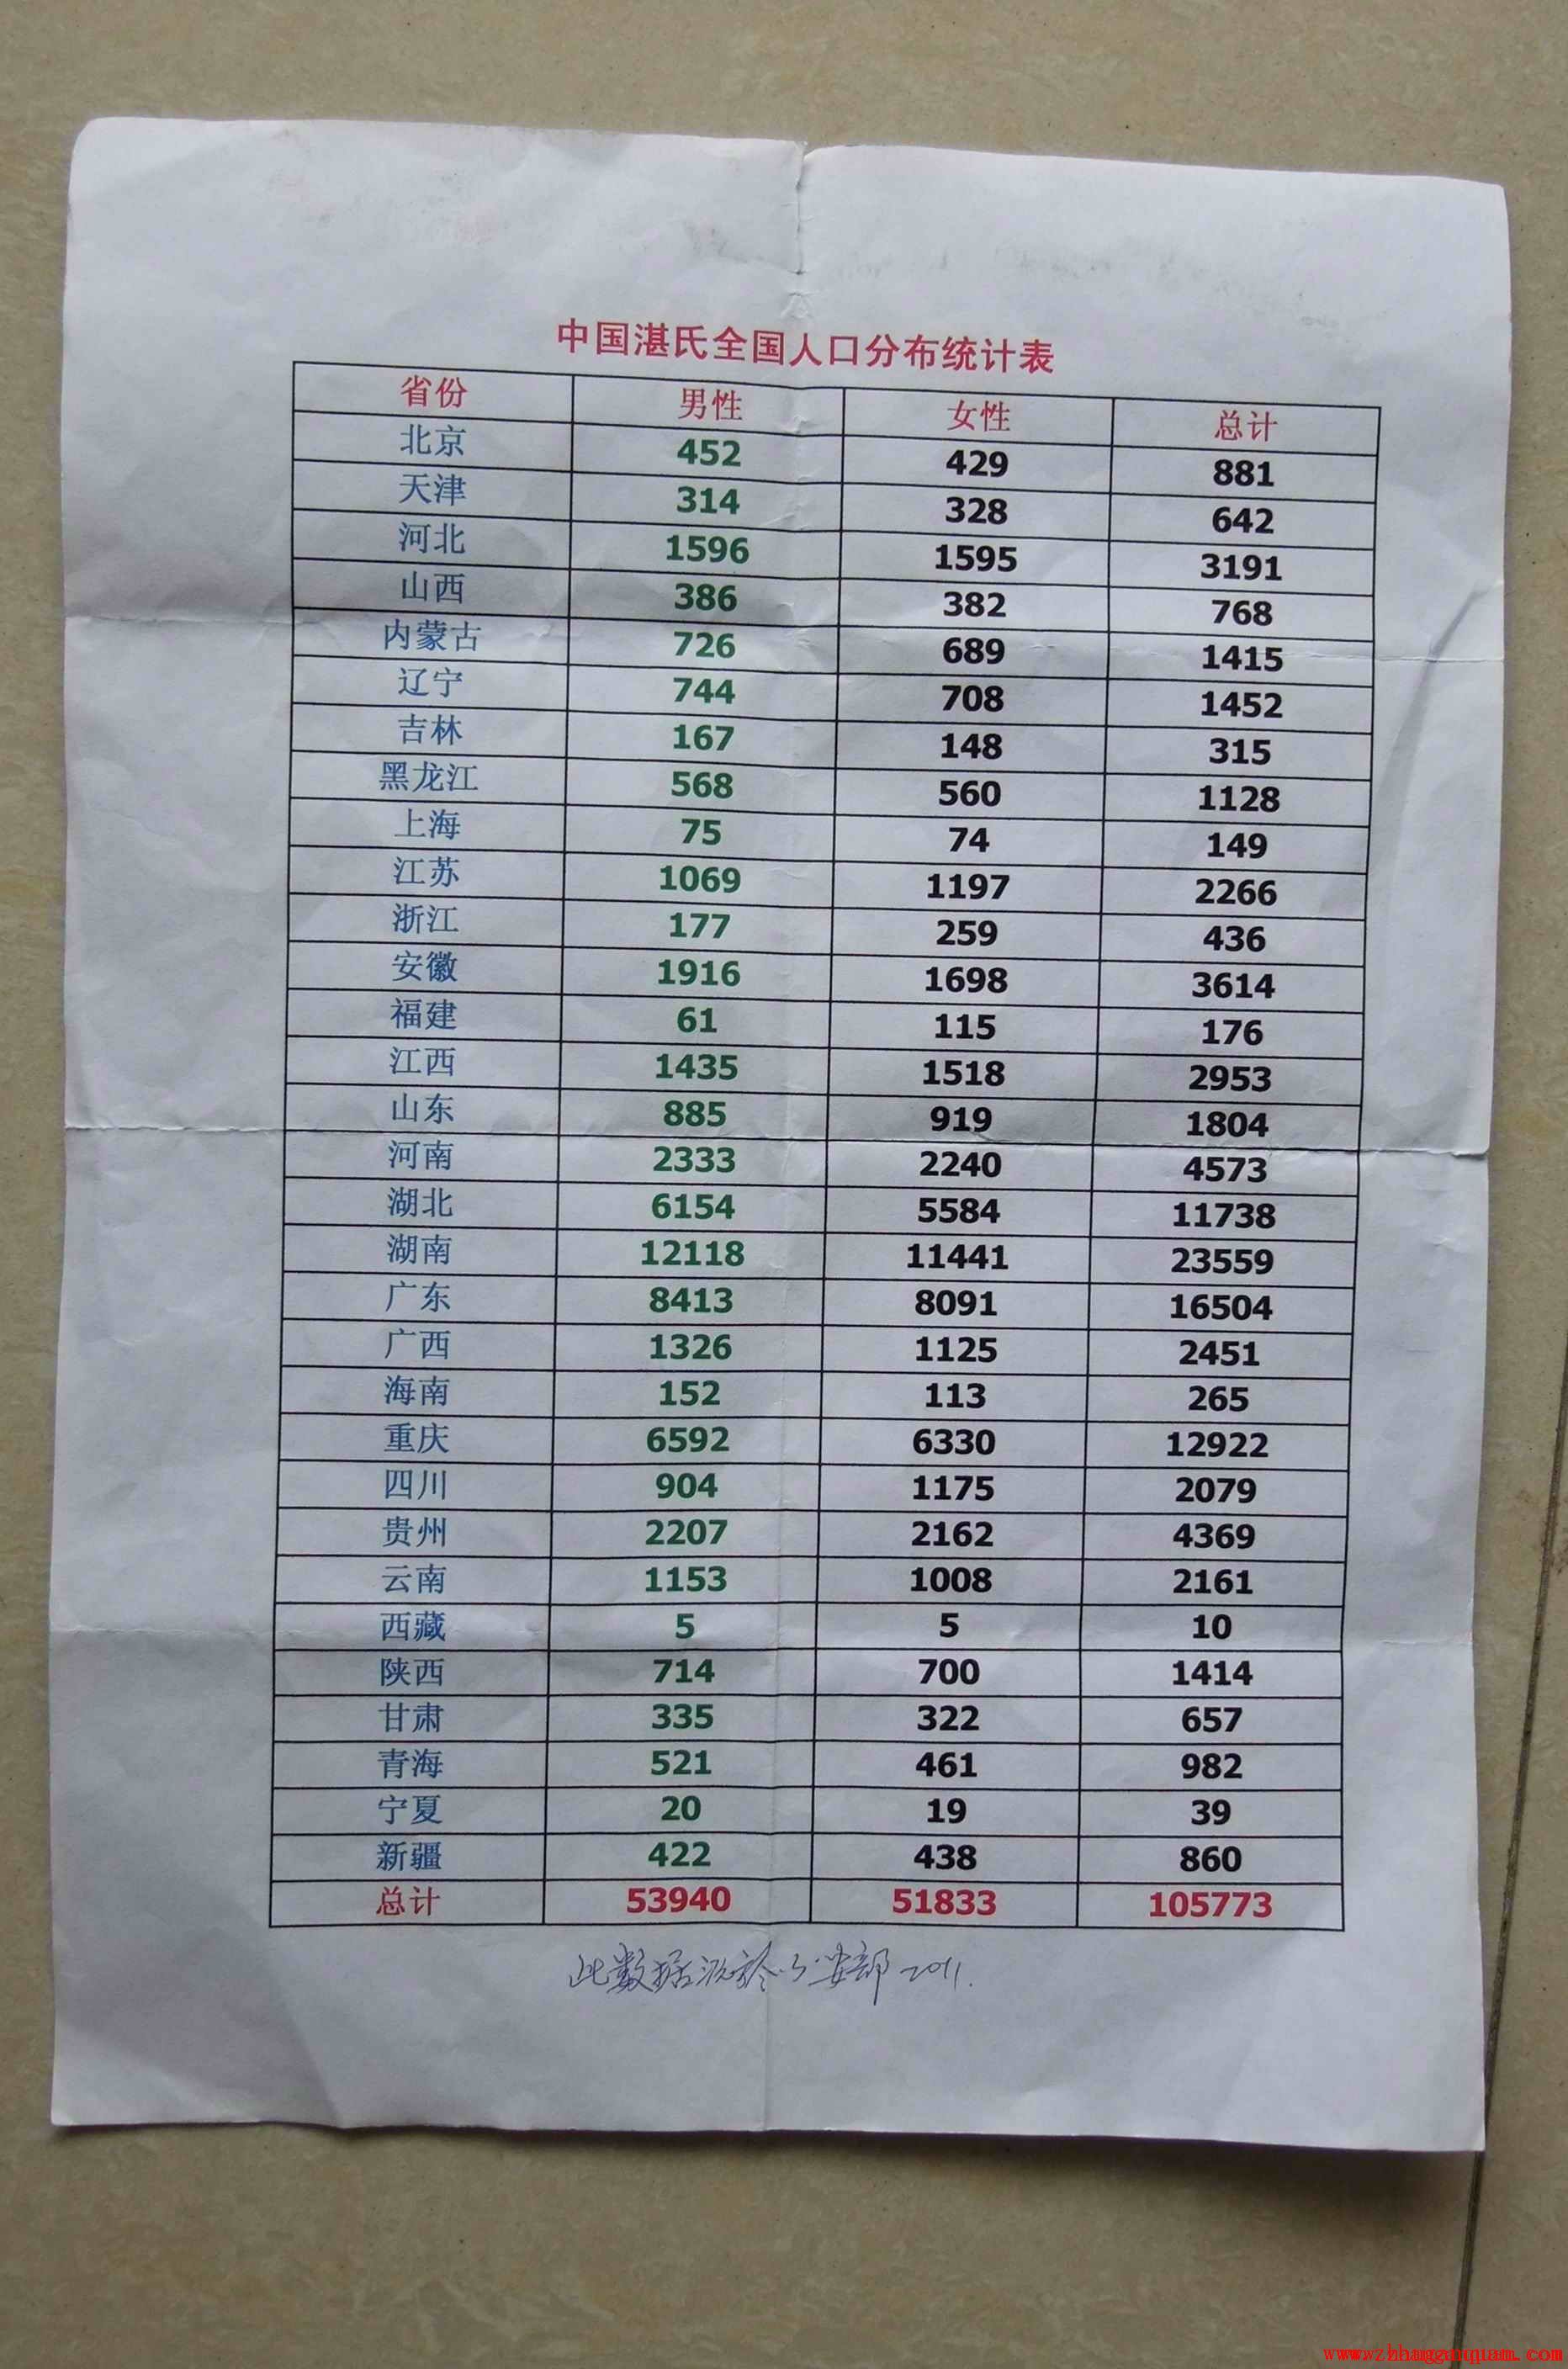 中国湛氏全国人口分布统计表
省份 男性 女性 总计
北京 452 429 881
天津 314 328 642
河北 1596 1595 3191
山西 386 382 768
内蒙古 726 689 1415
辽宁 744 708 1452
吉林 167 148 315
黑龙江 568 560 1128
上海 75 74 149
江苏 1069 1197 2266
浙江 177 259 436
安徽 1916 1698 3614
福建 61 115 176
江西 1435 1518 2953
山东 885 919 1804
河南 2333 2240 4573
湖北 6154 5584 11738
湖南 12118 11441 23559
广东 8413 8091 16504
广西 1326 1125 2451
海南 152 113 265
重庆 6592 6330 12922
四川 904 1175 2079
贵州 2207 2162 4369
云南 1153 1008 2161
西藏 5 5 10
陕西 714 700 1414
甘肃 335 322 657
青海 521 461 982
宁夏 20 19 39
新疆 422 438 860
总计 53940 51833 105773
此数据源於公安部2011.